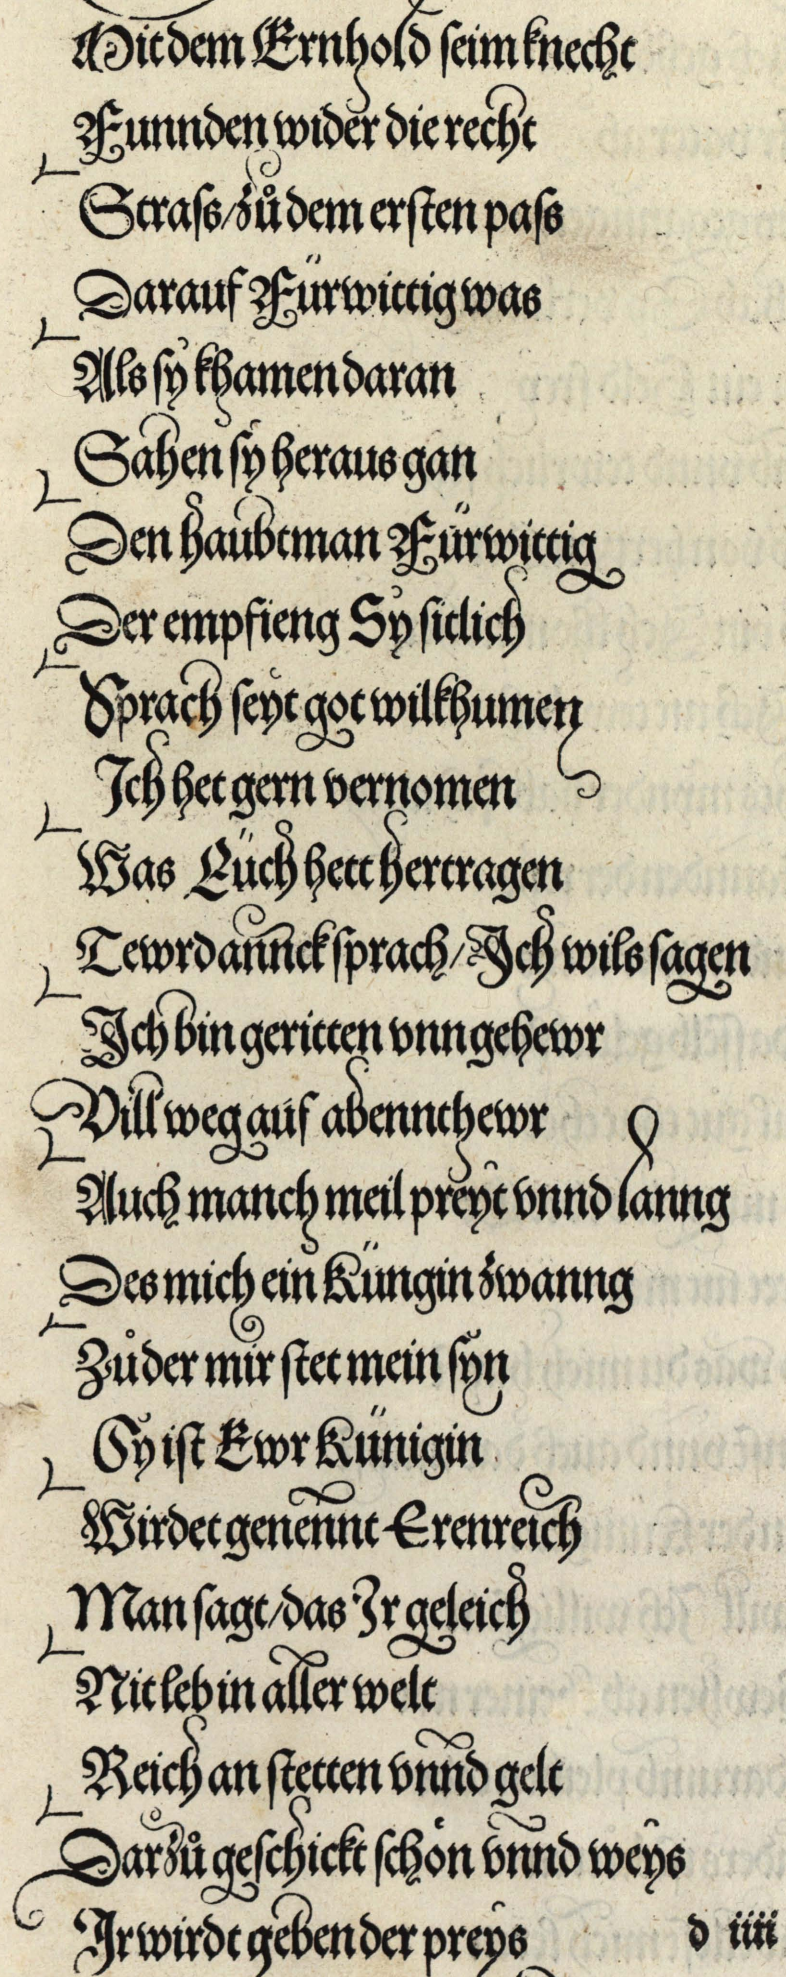 Mit dem Ernhold seim knecht
Funnden wider die recht
Strass/zů dem ersten pass
Darauf Fürwittig was
Als sÿ khamen daran
Sahen sÿ heraus gan
Den haubtman Fürwittig
Der empfieng Sy sitlich
Sprach seÿt got wilkhumen
Ich het gern vernomen
Was Eüch hett hertragen
Tewrdannck sprach/Ich wils sagen
Ich bin geritten vnngehewr
Vill weg auf abennthewr
Auch manch meil preyt vnnd lanng
Des mich ein Küngin zwanng
Zů der mir stet mein sÿn
Sy ist Ewr Künigin
Wirdet genennt Erenreich
Man sagt/das Ir geleich
Nit leb in aller welt
Reich an stetten vnnd gelt
Darzů geschickt schön vnnd weys
Ir wirdt geben der preys
d iiii